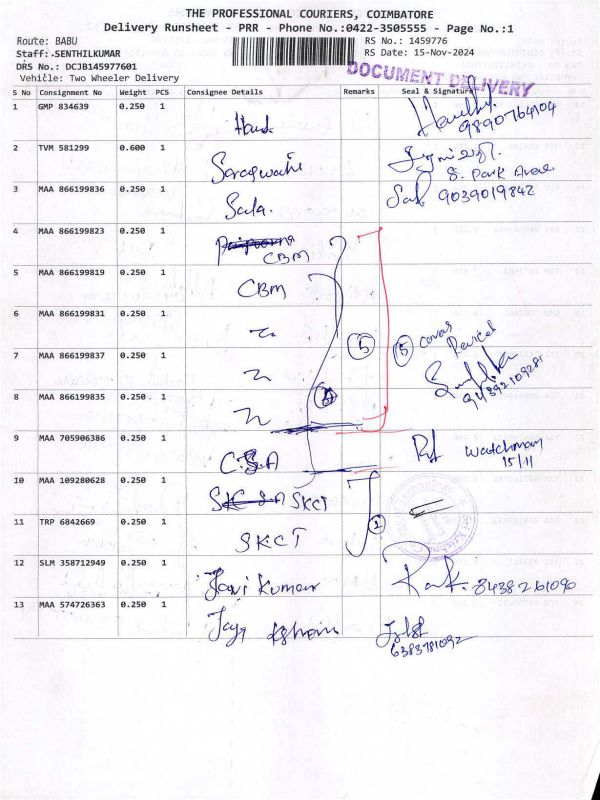 THE PROFESSIONAL COURIERS, COIMBATORE
Delivery Runsheet - PRR - Phone No.:0422-3505555 - Page No.:1
Route: BABU
RS No.: 1459776
Staff: SENTHILKUMAR
RS Date: 15-Nov-2024
DRS No.: DCJB145977601
Vehicle: Two Wheeler Delivery
DOCUMENT DELIVERY
S No Consignment No Weight PCS Consignee Details Remarks Seal & Signature
1 GMP 834639 0.250 1
9890764104
2 TVM 581299 0.600 1 Saragwathi
S. Park Avenue
3 MAA 866199836 0.250 1 Sala. Sal 9039019842
4 MAA 866199823 0.250 1 CBM
5 MAA 866199819 0.250 1 CBM
6 MAA 866199831 0.250 1
5 5 covers
7 MAA 866199837 0.250 1
8 MAA 866199835 0.250 1
9 MAA 705906386 0.250 1 C.S.A watchman
15/11
10 MAA 109280628 0.250 1 SKCT
11 TRP 6842669 0.250 1 SKCT
12 SLM 358712949 0.250 1 Kumar 8438261090
13 MAA 574726363 0.250 1 Jaya
6383781092